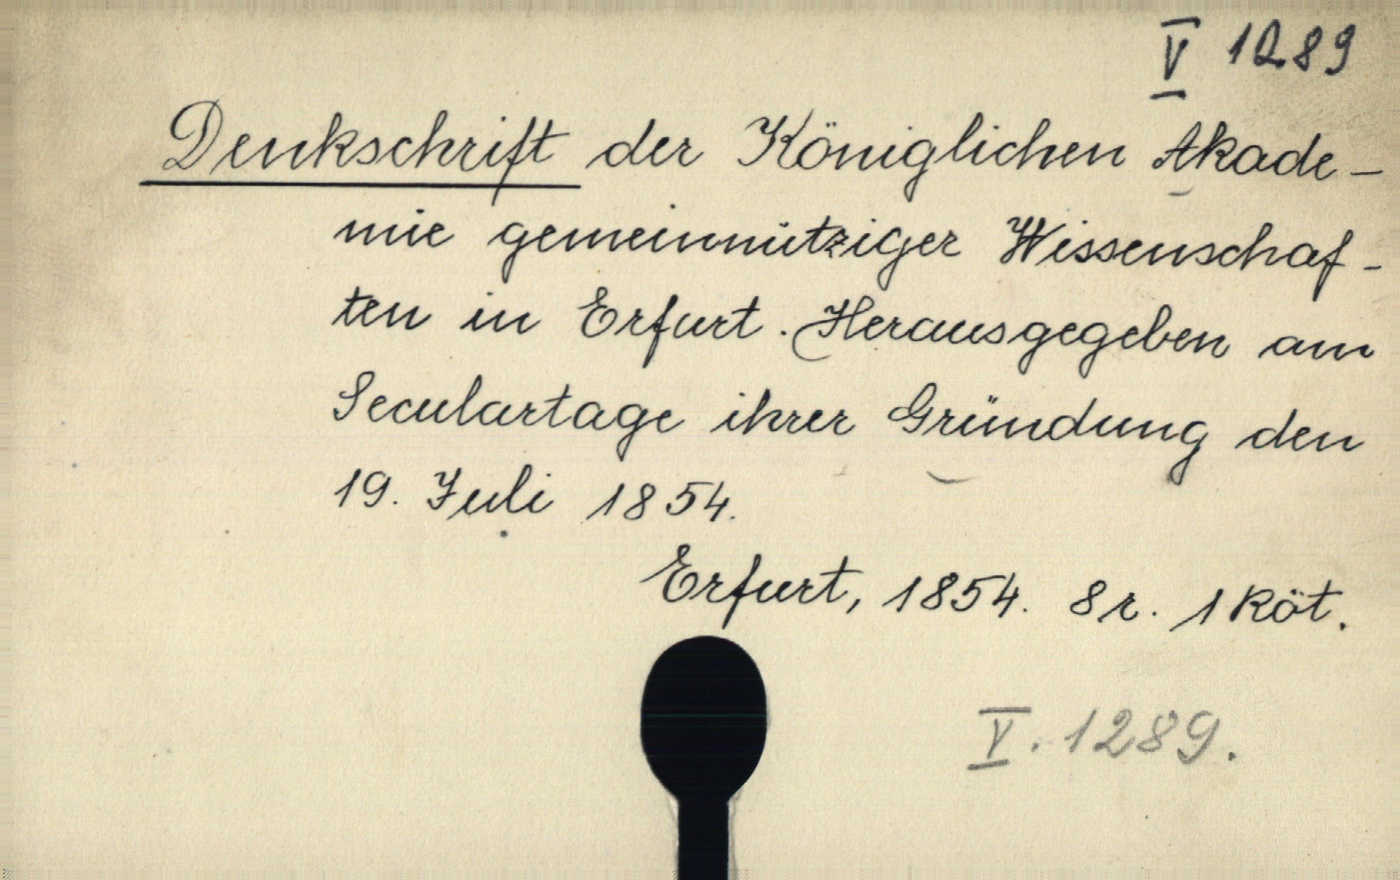 V 1289
Denkschrift der Königlichen Akade-
mie gemeinnütziger Wissenschaf-
ten in Erfurt. Herausgegeben am
Seculartage ihrer Gründung den
19. Juli 1854.
Erfurt, 1854. 8r. 1 Köt.
V. 1289.